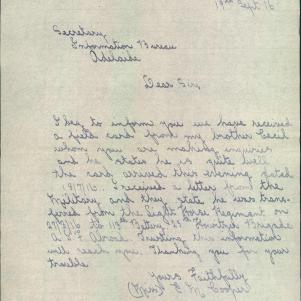 Sept 16
Secretary
Information Bureau
Adelaide
Dear Sir,
I beg to inform you we have received
a field card from my brother Cecil
whom you are making inquiries
and he states he is quite well
the card arrived this evening dated
19/7/16. I received a letter from the
Military and they state he was trans-
ferred from the Light Horse Regiment on
to Battery Howitzer Brigade
A.I.F. Abroad. Trusting this information
will reach you. Thanking you for your
trouble
Yours Faithfully
Cooper